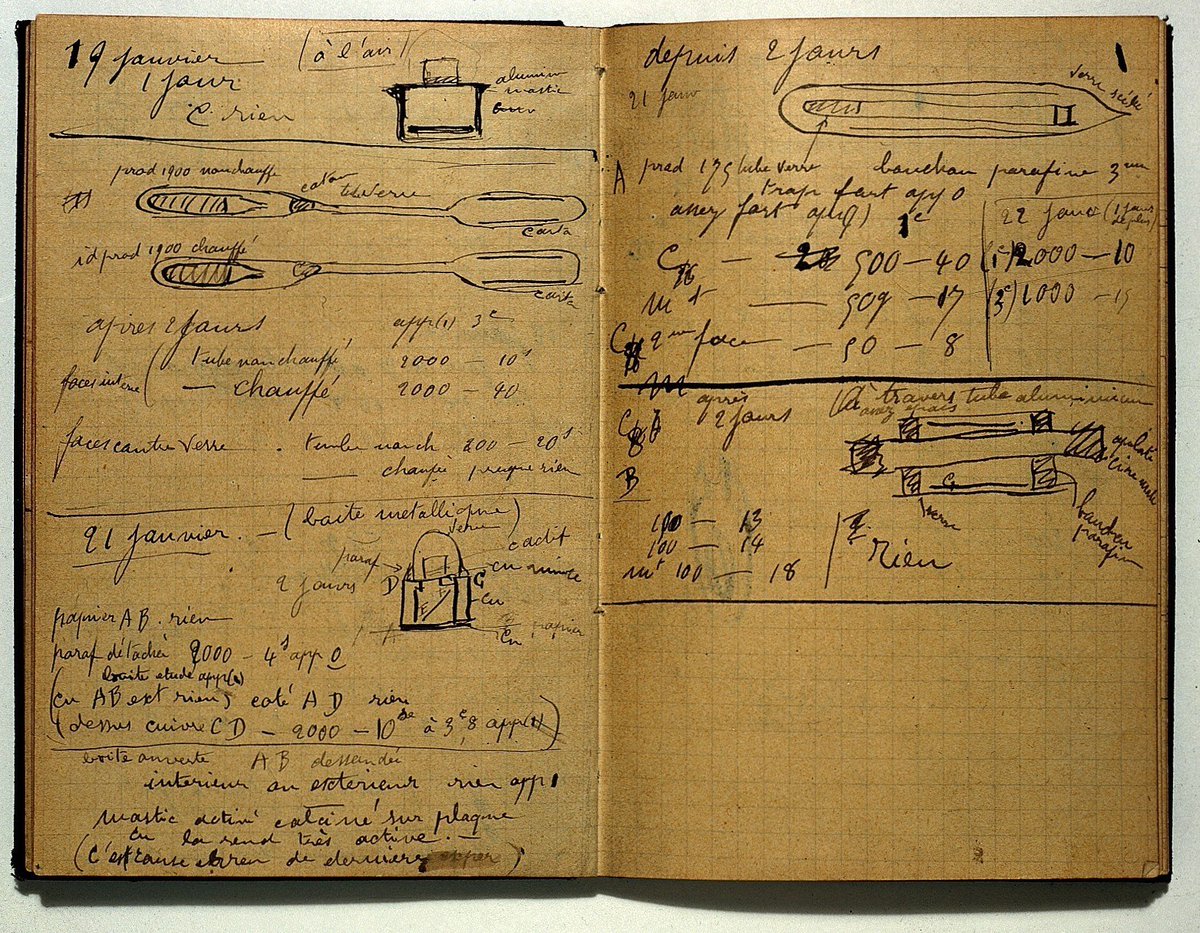 19 Janvier
1 jour
(à l'air)
C rien
aluminium
mastic
prod 1900 non chauffé
coton
tube verre
carta
id prod 1900 chauffé
carta
après 2 jours app(1) 3c
faces interne ( tube non chauffé 2000 — 10s
— chauffé 2000 — 40
faces contre verre . tube nonch 200 — 20s
— chauffé presque rien
21 Janvier. — (boite metallique)
verre
paraf
D
C
Cu
2 jours
Cu
A
papier
papier AB. rien
paraf détaché 2000 — 4s app 0
boite etude app(1)
(cu AB ext rien) coté AD rien
(dessus cuivre CD — 2000 — 10 à 3c,8 app(1))
boite ouverte AB dessoudée
interieur ou exterieur rien app 1
mastic activé calciné sur plaque
Cu la rend très active. —
(C'est de derniere)
depuis 2 jours
1
21 Janv
verre scellé
A prod 175 tube verre bouchon parafine 3
trop fort app 0
assez fort app 1c
22 Janv (1 jour de plus)
C — 500 — 40 (1c) 2000 — 10
m t — 509 — 17 (3c) 1000 — 15
C 2 face — 50 — 8
après
2 jours
(à travers tube aluminium
C
8
B
verre
bouchon
parafin
100 — 13
100 — 14
mt 100 — 18
rien